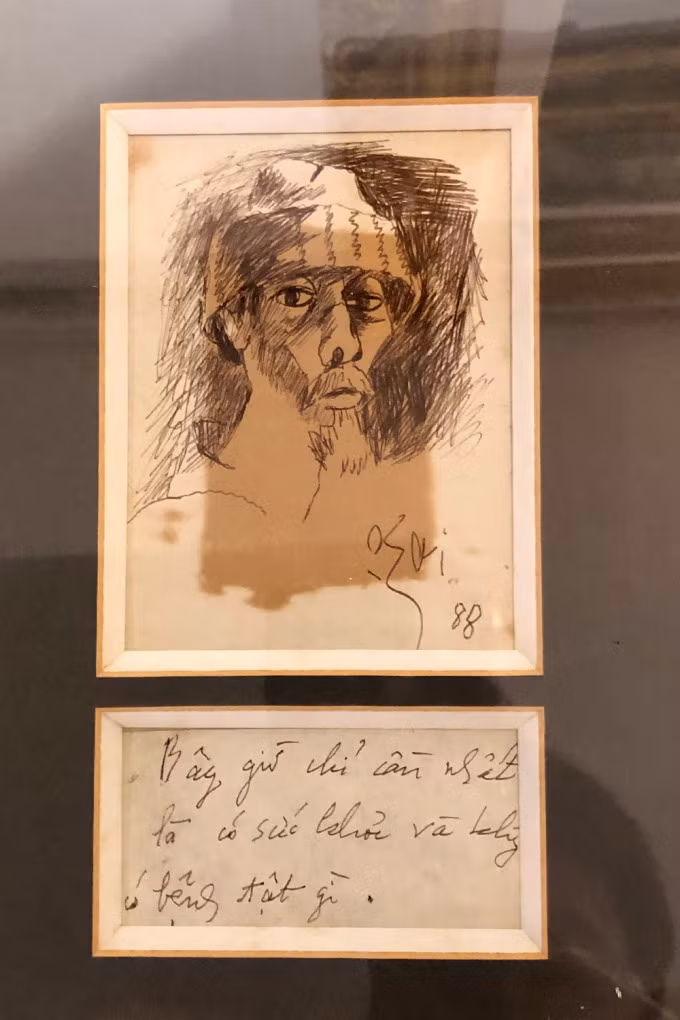 Phái
88
Bây giờ chỉ cần nhất
là có sức khỏe và khg
có bệnh tật gì .